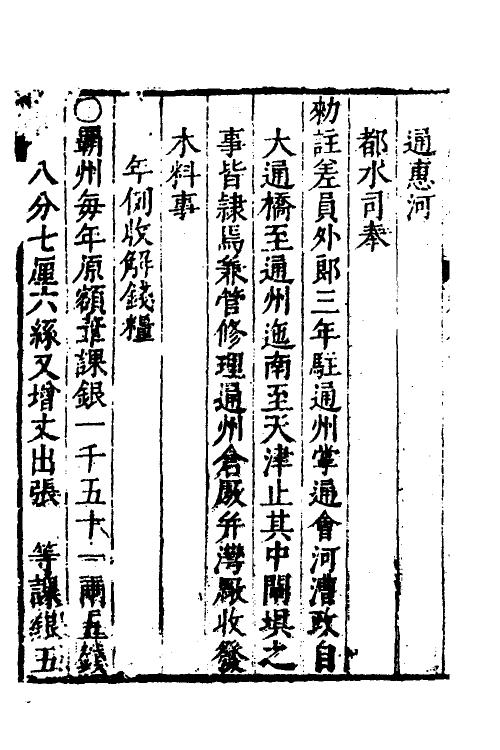 通惠河
都水司奉
勑註差員外郎三年駐通州掌通會河漕政自
大通橋至通州迤南至天津止其中閘埧之
事皆隷焉兼管修理通州倉厫并灣厰收發
木料事
年例收解錢糧
○霸州每年原額葦課銀一千五十一兩五錢
八分七厘六絲又增丈出張 等課銀五